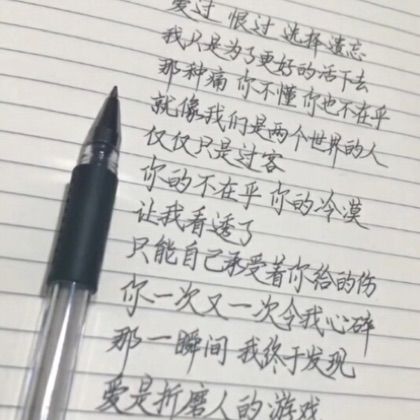 爱过 恨过 选择遗忘
我只是为了更好的活下去
那种痛 你不懂 你也不在乎
就像我们是两个世界的人
仅仅只是过客
你的不在乎 你的冷漠
让我看透了
只能自己承受着你给的伤
你一次又一次令我心碎
那一瞬间 我终于发现
爱是折磨人的游戏